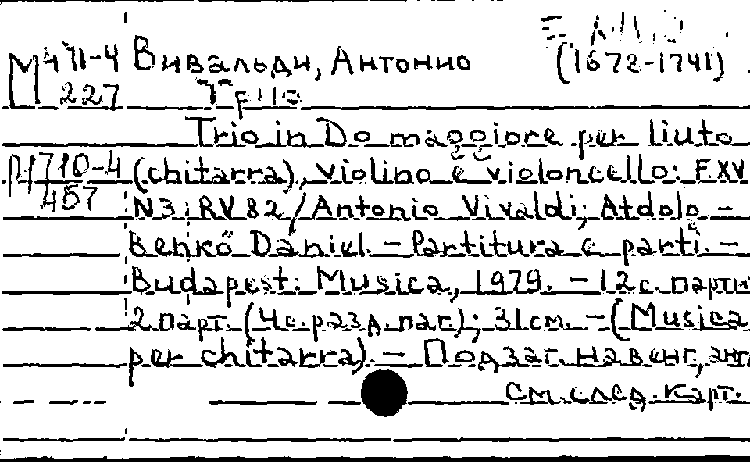 М 471-4 Вивальди, Антонио (1678-1741)
227 Трио
Trio in Do maggiore per liuto
М 710-4 (chitarra), violino e violoncello: F.XV
457 N3; RV 82 / Antonio Vivaldi; Átdolg. -
Benkő Dániel. - Partitura e parti. -
Budapest: Musica, 1979. - 12 с. парти
2 парт. (4 с. разд. паг.); 31 см. - (Musica
per chitarra). - Подзаг. на венг., анг
См. след. карт.